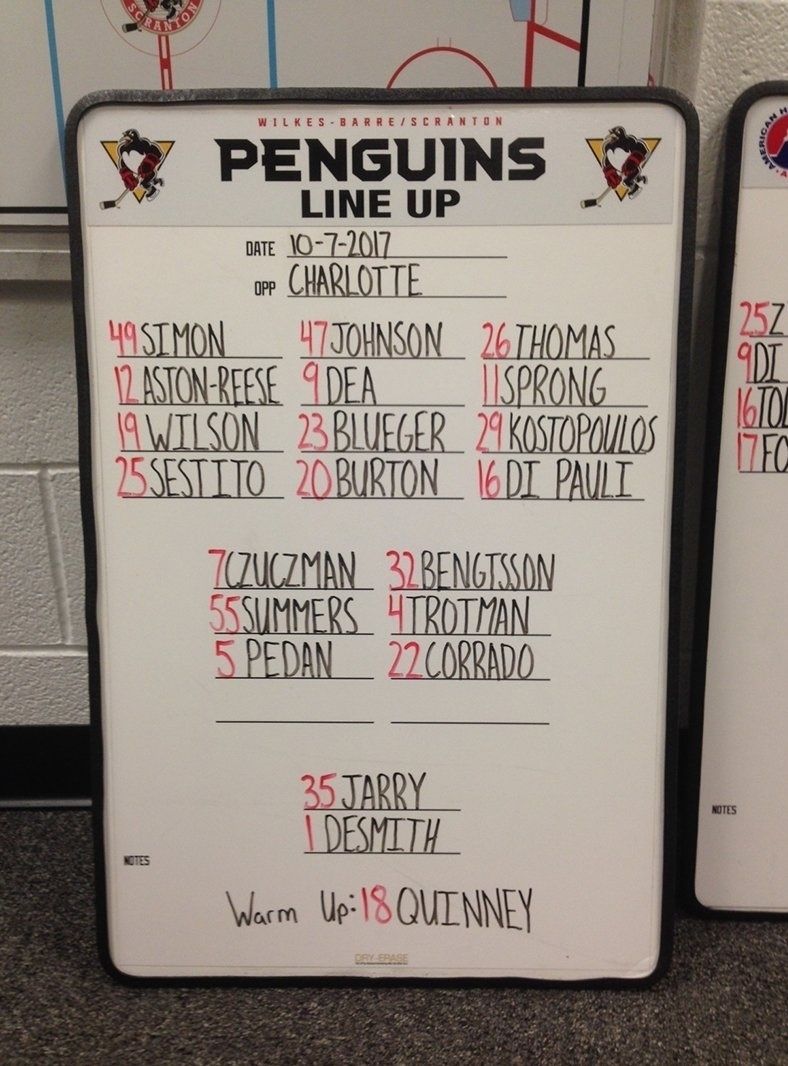 SCRANTON
WILKES-BARRE/SCRANTON
PENGUINS
LINE UP
DATE 10-7-2017
OPP CHARLOTTE
49 SIMON 47 JOHNSON 26 THOMAS
12 ASTON-REESE 9 DEA 11 SPRONG
19 WILSON 23 BLUEGER 29 KOSTOPOULOS
25 SESTITO 20 BURTON 16 DI PAULI
7 CZUCZMAN 32 BENGTSSON
55 SUMMERS 4 TROTMAN
5 PEDAN 22 CORRADO
35 JARRY
1 DESMITH
NOTES
Warm Up: 18 QUINNEY
DRY-ERASE
AMERICAN
25 Z
9 DI
16 TO
17 FO
NOTES